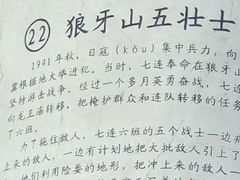 22 狼牙山五壮士
1941年秋，日寇(kòu)集中兵力，向
冀根据地大举进犯。当时，七连奉命在狼牙山
坚持游击战争。经过一个多月英勇奋战，七连
向龙王庙转移，把掩护群众和连队转移的任务
了六班。
为了拖住敌人，七连六班的五个战士一边
上来的敌人，一边有计划地把大批敌人引上了
他们利用险要的地形，把冲上来的敌人一